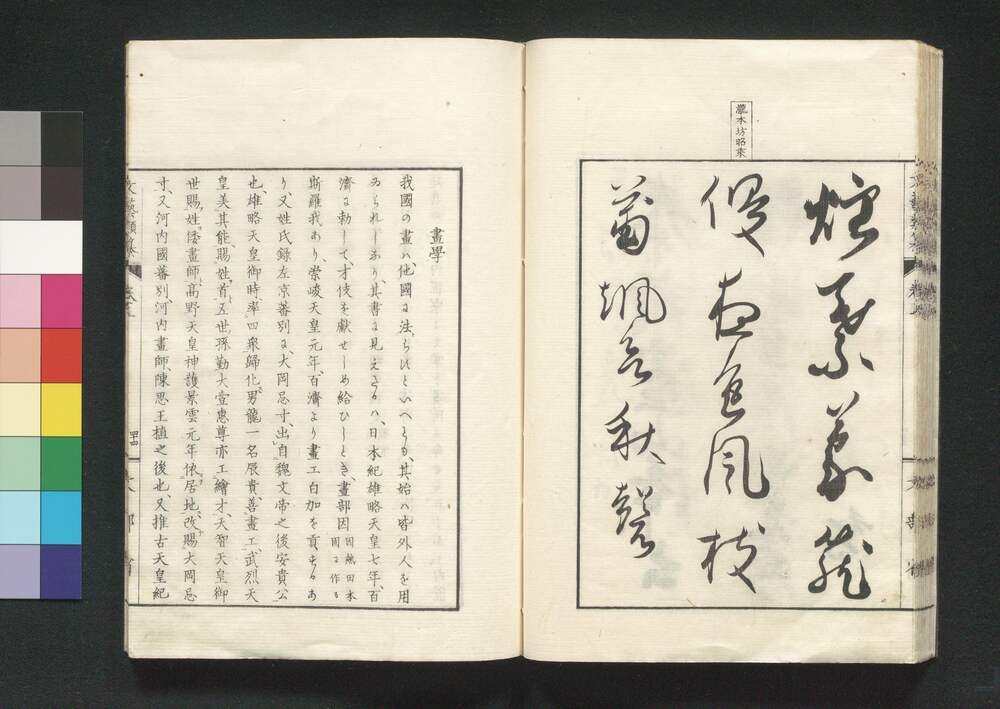 瀧本坊昭乘
煙葉蒙籠
侵夜色風枝
蕭颯欲秋聲
畫學
我國の畫ハ、他國に法、らひたといへとも、其始ハ皆外人を用
ゐられしなり、其書に見えたるハ、日本紀雄略天皇七年、百
濟に勅して、才伎を獻せしめ給ひしとき、畫部因
因斯羅我あり、崇峻天皇元年、百濟より畫工白加を貢せるあ
り、又姓氏錄左京蕃別に、大岡忌寸、出自魏文帝之後安貴公
也、雄略天皇御時、率四衆歸化、男龍一名辰貴、善畫工、武烈天
皇美其能、賜姓首、五世孫勤大壹惠尊亦工繪才、天智天皇御
世賜姓倭畫師、高野天皇神護景雲元年、依居地、改賜大岡忌
寸、又河内國蕃別、河内畫師、陳思王植之後也、又推古天皇紀
文藝類纂
四十四
文部省